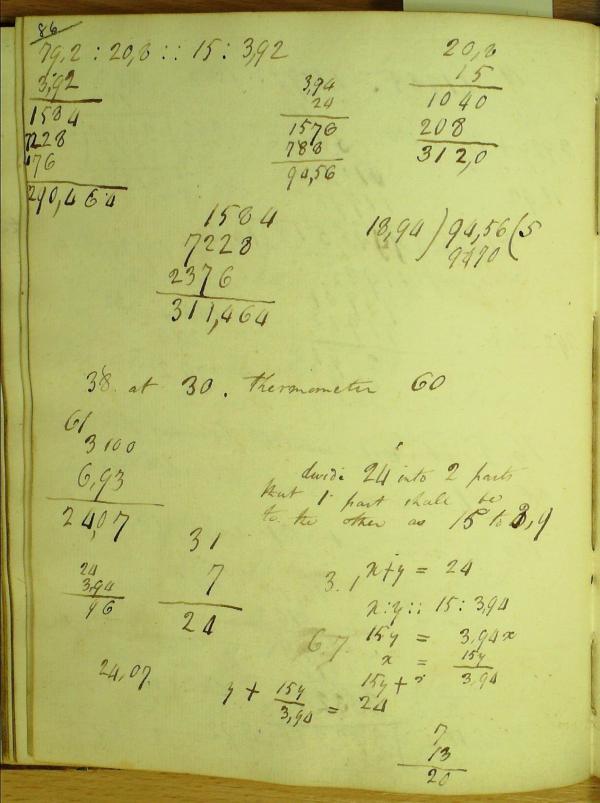 86
79,2 : 20,8 :: 15 : 3,92
3,92
1584
7228
76
290,464
3,94
24
1576
788
94,56
20,8
15
1040
208
312,0
1584
7228
2376
311,464
18,94 ) 94,56 ( 5
9470
38. at 30. thermometer 60
61
3100
6,93
24,07
divide 24 into 2 parts
that 1 part shall be
to the other as 15 to 3,9
31
7
24
24
3,94
96
3.1
x+y = 24
x:y :: 15 : 3,94
6.7.
15y = 3,94x
x = 15y
3,94
24,07
y + 15y
3,94 = 24
7
13
20